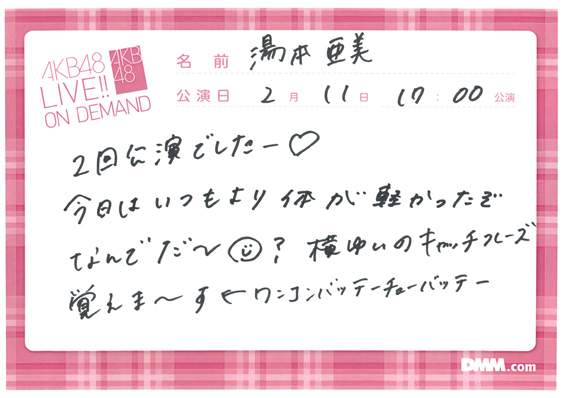 AKB48
LIVE!!
ON DEMAND
AKB
48
名前 湯本亜美
公演日 2月11日 17:00公演
2回公演でしたー♡
今日はいつもより体が軽かったぞ
なんでだ〜☺? 横ゆいのキャッチフレーズ
覚えま〜す←ワンコンバッテーチューバッテー
DMM.com